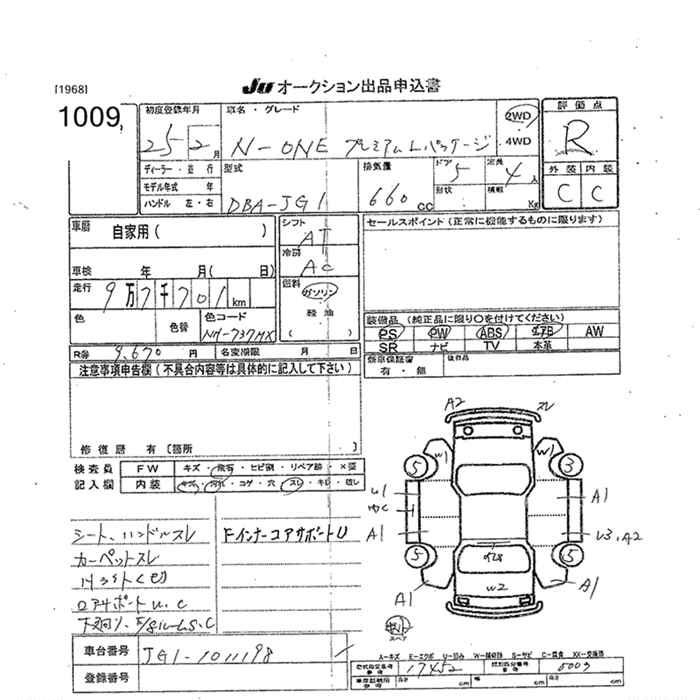 [1968]
JU オークション出品申込書
1009
初度登録年月
25 2 月
車名・グレード
N-ONE プレミアム Lパッケージ
2WD
4WD
評価点
R
外装 内装
C C
ディーラー・並行
モデル年式 年
ハンドル 左・右
型式
DBA-JG1
排気量
660 cc
ドア 5
形状
定員 4 人
積載 Kg
車歴
自家用( )
車検 年 月( 日)
走行
9万7千701 km
色
色替
色コード
NH-737MX
シフト
AT
冷房
AC
燃料
ガソリン
軽油
( )
セールスポイント (正常に機能するものに限ります)
装備品 (純正品に限り○を付けてください)
PS PW ABS エアB AW
SR ナビ TV 本革
保証書
有・無
後日品
R券 9,670 円 名変期限 月 日
注意事項申告欄(不具合内容等は具体的に記入して下さい)
修復歴 有 [箇所 ]
検査員 FW キズ・飛石・ヒビ割・リペア跡・×要
記入欄 内装 キズ・汚れ・コゲ・穴・スレ・キレ・欠し
シート、ハンドルスレ
カーペットスレ
コアサポートU、C
Fインナーコアサポート U
A2 スレ
W1 W1
5 3
U1
A1
A1
A1
U3、A2
5 5
W2
A1
A1
スペア
車台番号 JG1-1011198
登録番号
A-キズ E-エクボ U-凹み W-補修跡 S-サビ C-腐食 XX-交換済
型式指定番号 17452
類別区分番号 5003
長さ cm
幅 cm
高さ cm